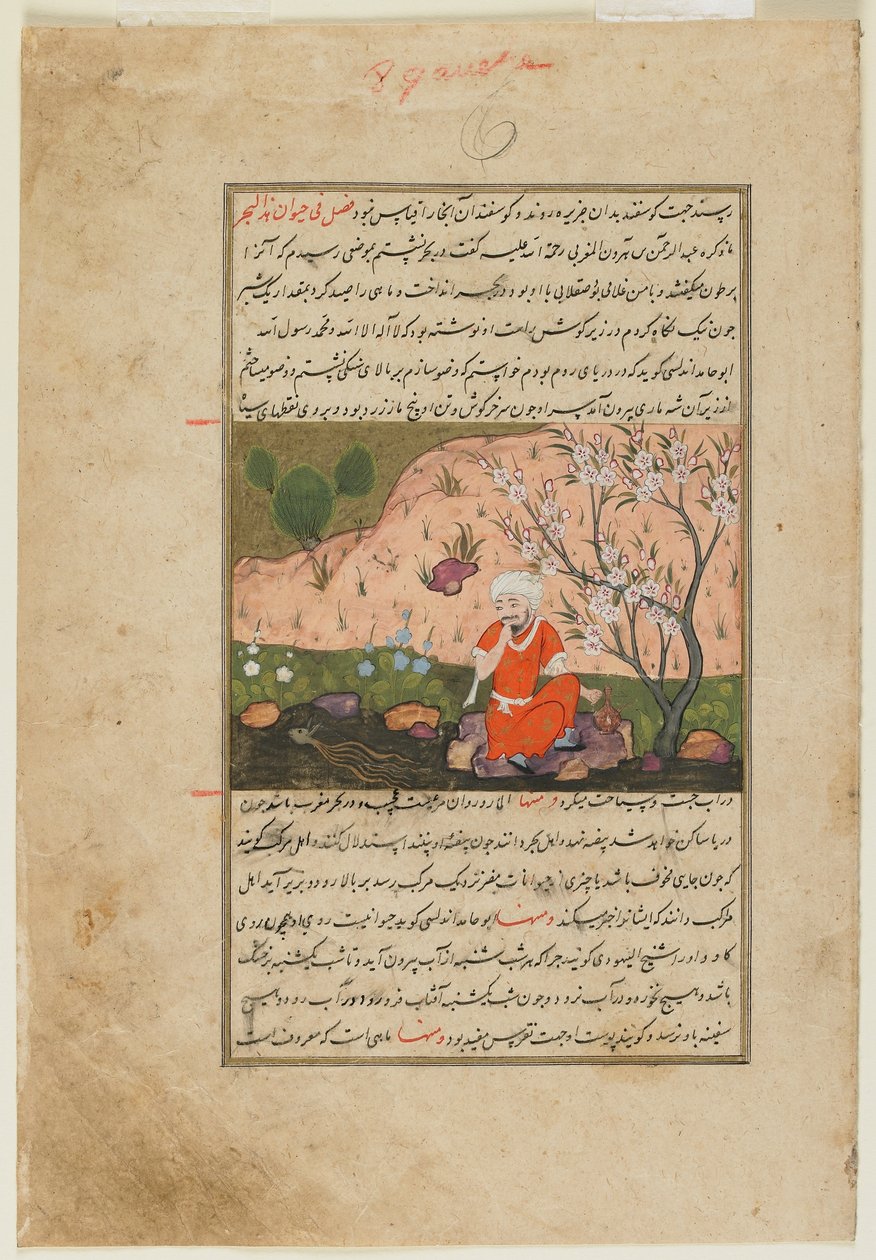 8 gauche
رسند جهت کوسفند بدان جزیره روند و کوسفندان آنجا را قیاس نبود فصل فی حیوان هذا البحر
ما ذکره عبد الرحمن بن هرون المغربی رحمة الله علیه کفت در بحر نشستم بموضعی رسیدم که آنرا
برطون میکفتند و با من غلامی بود صقلابی با او بود در بحر انداخت و ماهی را صید کرد بمقدار یک شبر
جون نیک نکاه کردم در زیر کوش راست او نوشته بود که لا اله الا الله و محمد رسول الله
ابو حامد اندلسی کوید که در دریای روم بودم خواستم که وضو سازم بر بالای سنکی نشستم و وضو میساختم
از زیر آن سنک ماری بیرون آمد سر او جون سر خرکوش و تن او زرد بود و بروی نقطهای سیاه
در آب جست و سباحت میکرد و منها در بحر مغرب باشد جون
دریا ساکن خواهد شد بیضه نهد و اهل بحر دانند جون بیضه او بینند استدلال کنند و اهل مرکب کویند
که جون جایی مخوف باشد یا چیزی از حیوانات مضر نزدیک مرکب رسد بر بالا رود و بزیر آید اهل
مرکب دانند که ایشانرا خبر میکند و منها ابو حامد اندلسی کوید حیوانیست روی او همچون روی
کاو و او را شیخ الیهودی کویند جرا که هر شب شنبه از آب بیرون آید و تا شب یکشنبه بر خشک
باشد و هیچ نخورد و در آب نرود و جون شب یکشنبه آفتاب فرو رود در آب رود و هیچ
سفینه باو نرسد و کویند پوست او جهت نقرس مفید بود و منها ماهی است که معروف است